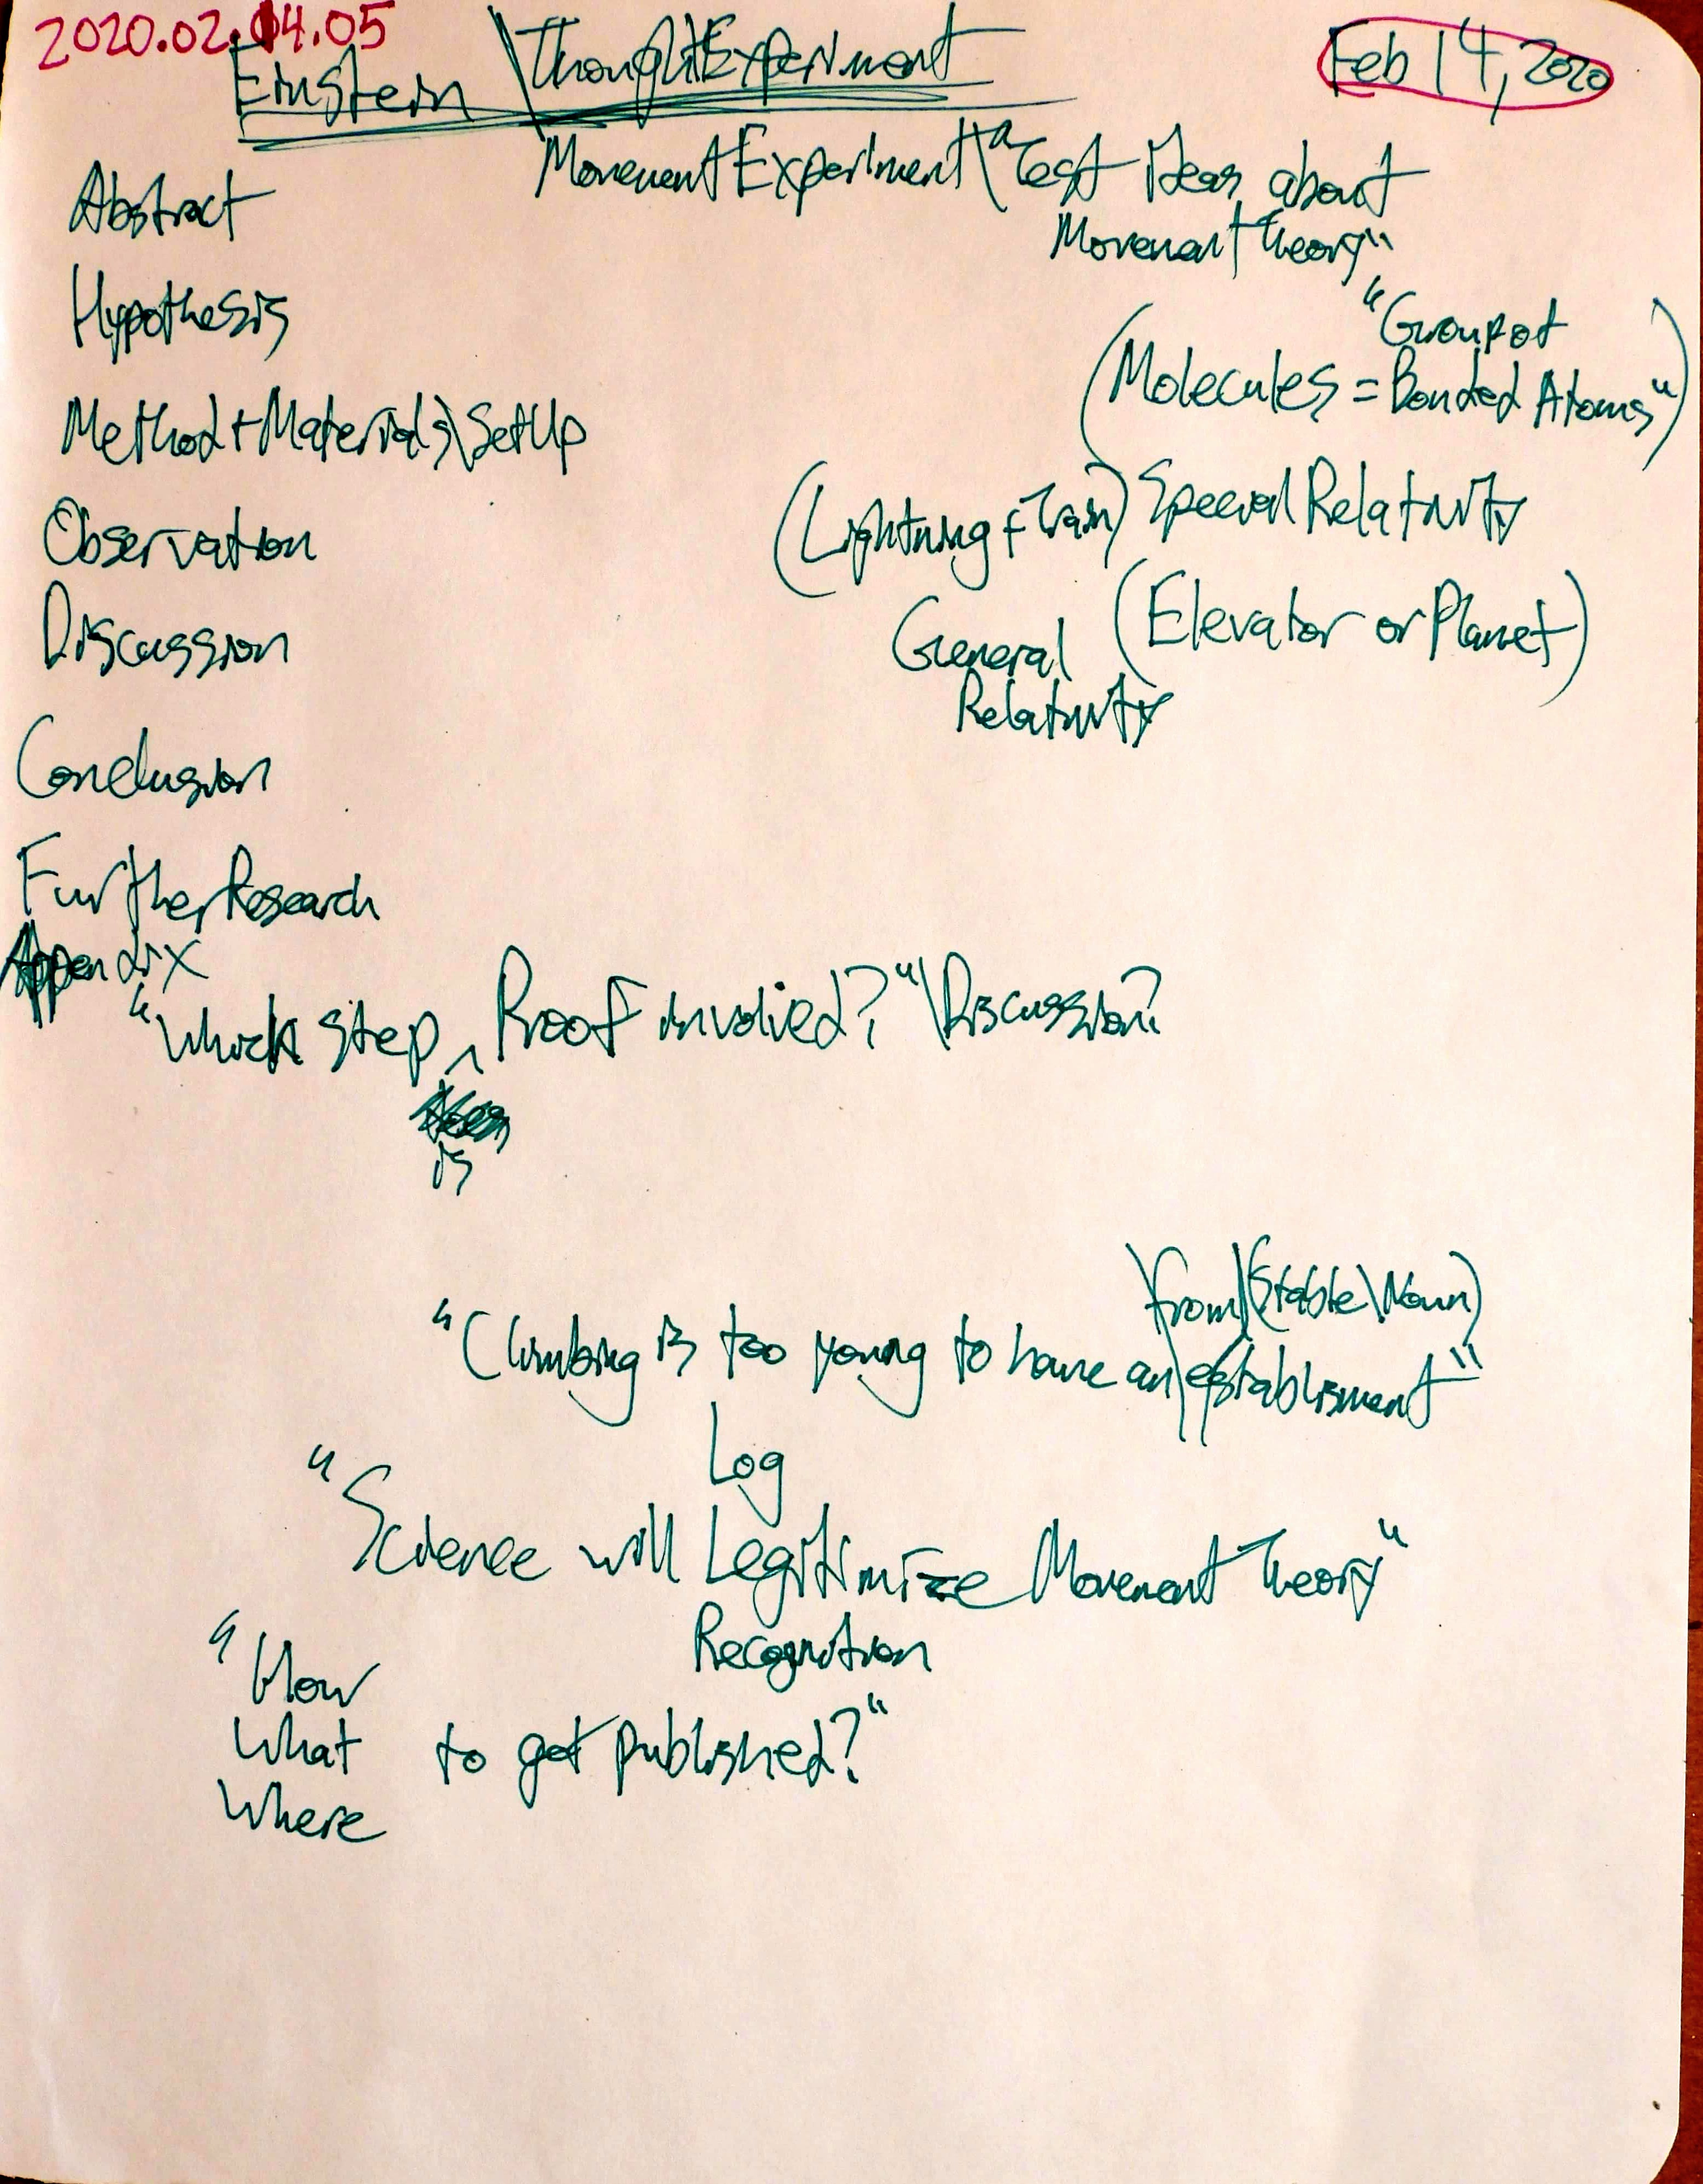 2020.02.14.05
Feb 14, 2020
Einstein \Thought Experiment
Movement Experiment\"Test Ideas about
Movement Theory"
Abstract
Hypothesis
Method + Materials\SetUp
Observation
Discussion
Conclusion
Further Research
Appendix
"Group of
(Molecules = Bonded Atoms")
(Lightning + Train) Special Relativity
General (Elevator or Planet)
Relativity
"Which step ^ Proof involved?"\Discussion?
is
\from\(Stable\Noun)
"Climbing is too young to have an\establisment"
Log
"Science will Legitimize Movement Theory"
Recognition
"How
What to get published?"
Where